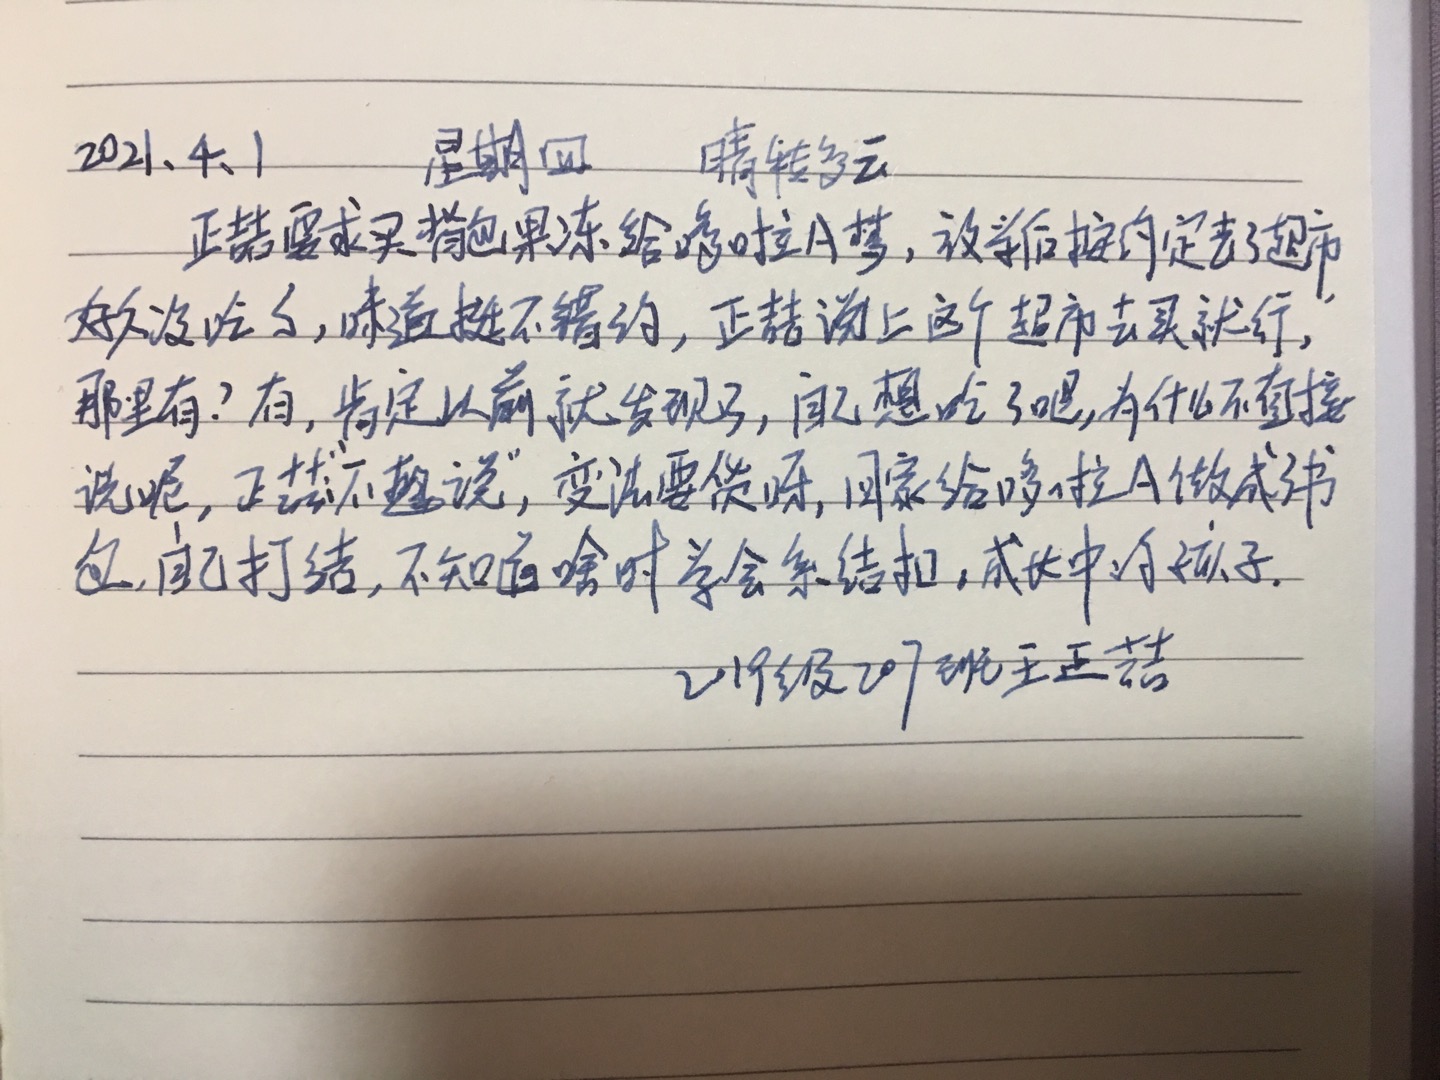 2021、4、1 星期四 晴转多云
正喆要求买背包果冻给哆啦A梦，放学后按约定去了超市，
好久没吃了，味道挺不错的，正喆说上这个超市去买就行，
那里有？有，肯定以前就发现了，自己想吃了吧，为什么不直接
说呢，正喆"不想说"，变法要货呀，回家给哆啦A做成书
包，自己打结，不知道啥时学会系结扣，成长中的孩子．
2019级207班王正喆